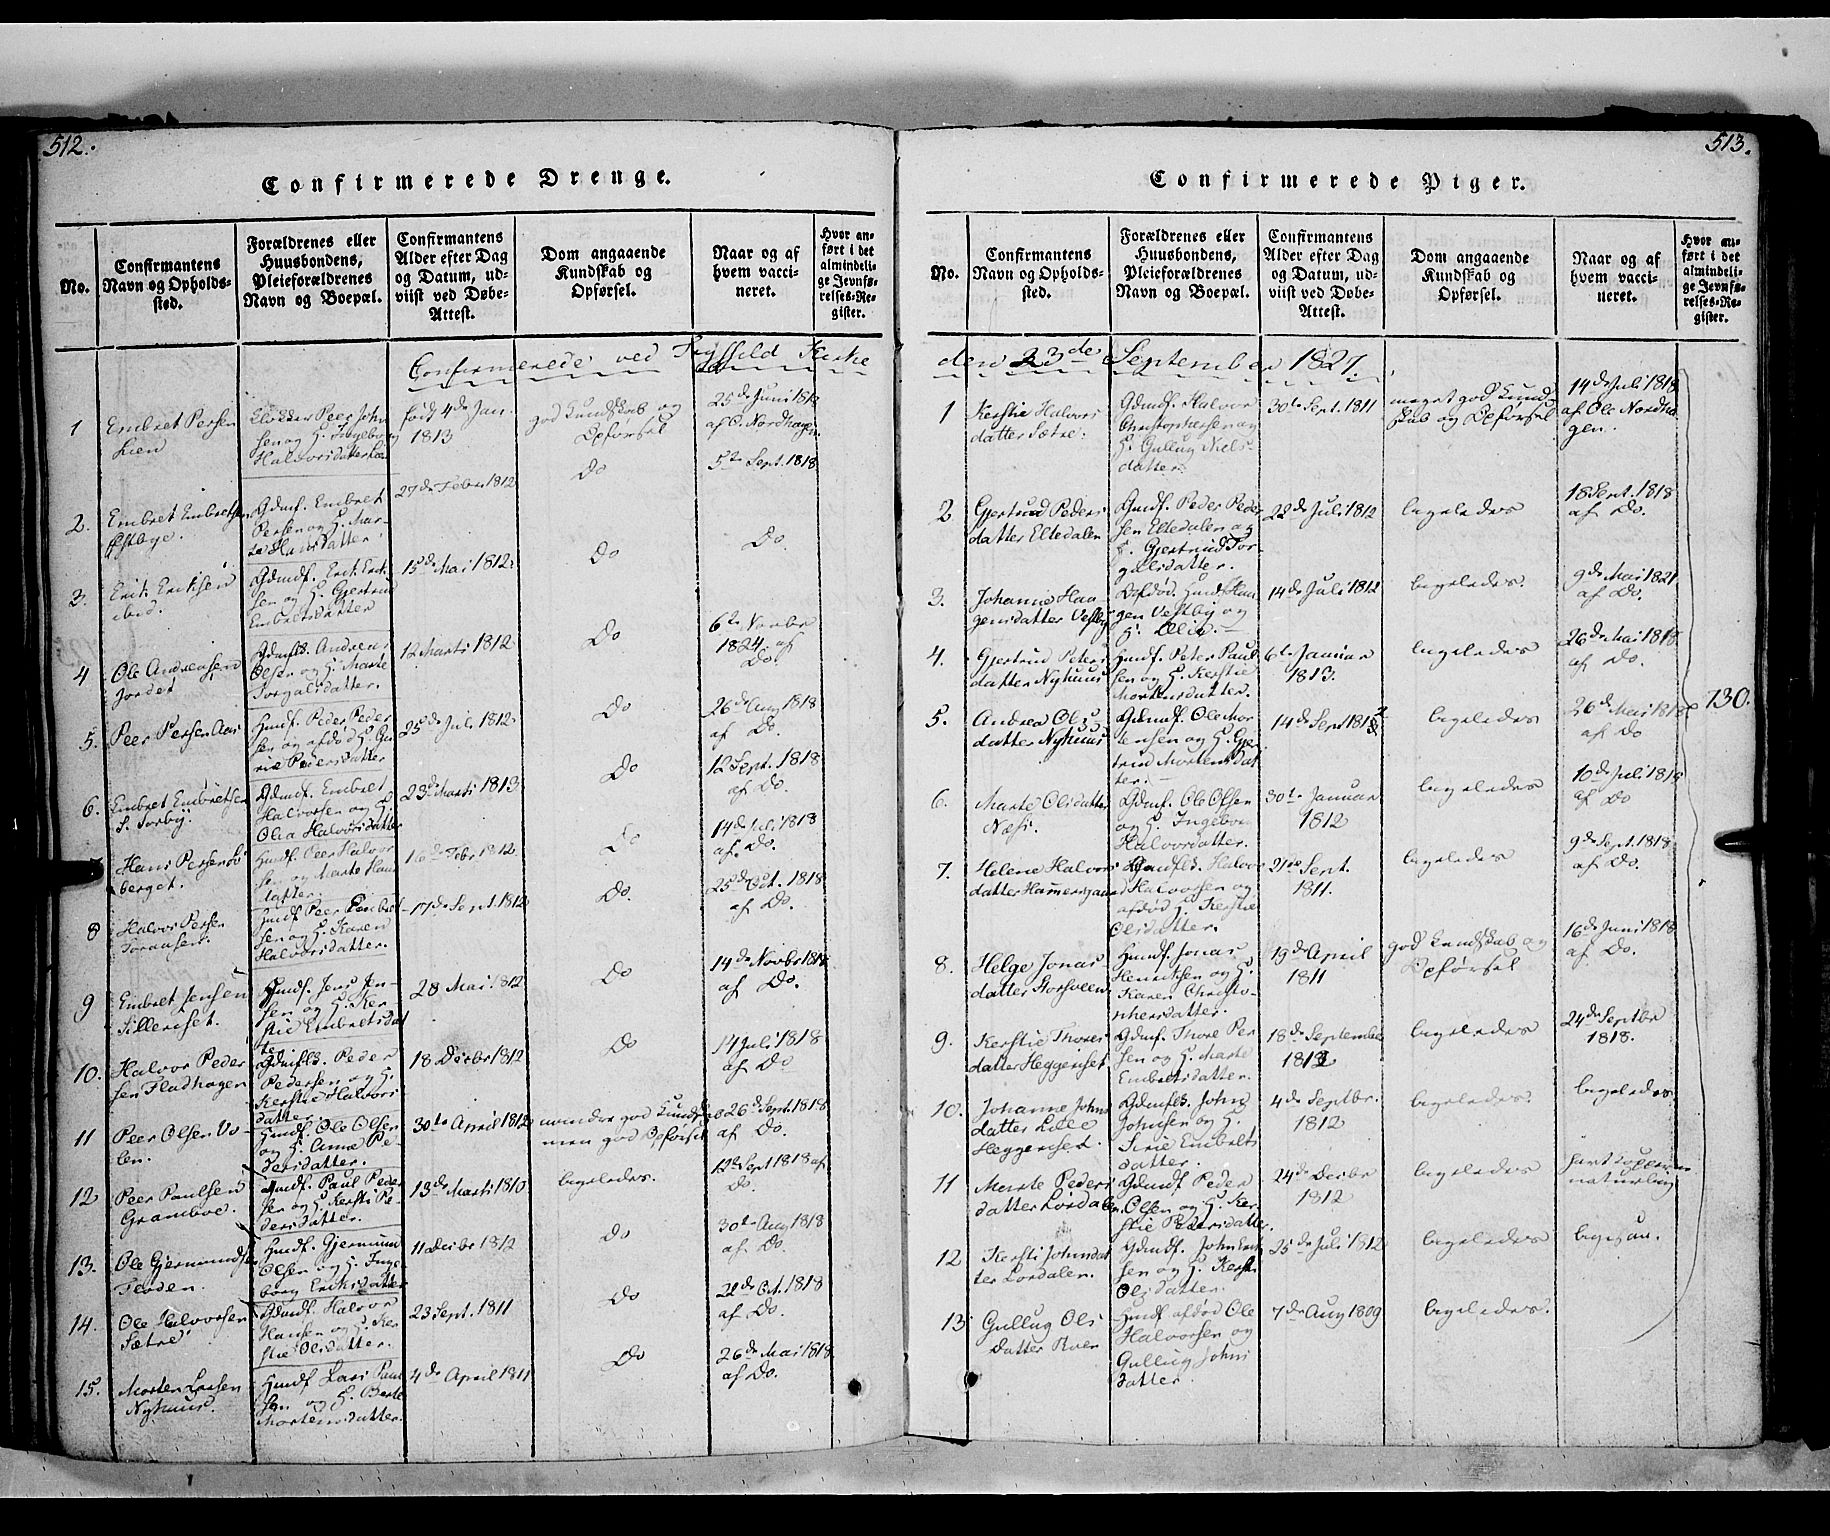 512.
Confirmerede Drenge.
No.
Confirmantens
Navn og Opholds-
sted.
Forældrenes eller
Huusbondens,
Pleieforældrenes
Navn og Boepæl.
Confirmantens
Alder efter Dag
og Datum, ud-
viist ved Døbe-
Attest.
Dom angaaende
Kundskab og
Opførsel.
Naar og af
hvem vacci-
neret.
Hvor an-
ført i det
almindeli-
ge Jevnfø-
relses-Re-
gister.
Confirmerede ved Trysild Kirke
1
Embret Persen
Lien
Peer John
sen og H. Ingeborg
Halvorsdatter
født 4de Jan.
1813
god Kundskab og
Opførsel
25de Juni 1812
af O. Nordhagen
2.
Embret Embretsen
Østbye.
Gdmd. Embret
Persen og H. Mar-
te Hansdatter
27de Febr 1812
Do
5te Sept. 1818
Do.
3.
Erik Eriksen
ibid.
Gdmd. Erik Erik
sen og H. Gjertrud
Embretsdatter
15de Mai 1812
Do
4
Ole Andreasen
Jordet
Andreas
Olsen og H. Marte
Torgalsdatter.
12 Marts 1812
Do
6te Novbr
1824 af
Do.
5.
Peer Persen Aas
Huusd. Peder Peder
sen og afdød H. Gu
rie Pedersdatter
25de Juli 1812
Do
26de Aug 1818
af Do.
6.
Embret Embretsen
S. Torbÿ.
Gdmd. Embret
Halvorsen og H
Olia Halvorsdatter
23de Marts 1813
Do
12 Sept. 1818
af Do.
7
Hans Persen
berget.
Huusd. Peer Halvor
sen og Marte Hans
datter
16de Febr 1812
Do
14de Juli 1818
af Do.
8
Halvor Persen
Huusd Peer Embret
sen og H. Karen
Halvorsdatter.
17de Sept. 1812
Do.
25de Oct. 1818
af Do.
9
Embret Jensen
Huusd. Jens Jen-
sen og H. Ker
stie Embretsdat
ter
28 Mai 1812
Do
14de Novbr 1818
af Do.
10.
Halvor Peder
sen Fladhagen
Peder
Pedersen og H.
Kerstie Halvors
datter.
18 Decbr 1812
Do
14 Juli 1818
af Do
11
Peer Olsen Vo-
len.
Huusd. Ole Olsen
og H. Anne Pe-
dersdatter.
30te April 1812
mindre god Kundskab
men god Opførsel
26de Sept. 1818
af Do.
12
Peer Paulsen
Gramboe.
Huusd. Paul Peder
sen og H. Kersti Pe-
dersdatter.
13de Marts 1810
ligeledes.
12te Sept 1818 af
Do.
13.
Ole Gjermundsen
Floden.
Huusd. Gjermun
Olsen og H. Inge
borg Eriksdatter
11 Decbr 1812
Do
30te Aug 1818
af Do.
14.
Ole Halvorsen
Sætre
Gdmd. Halvor
Hansen og H. Ker
stie Olsdatter.
23 Sept. 1811
Do
Oct. 1818
af Do.
15.
Morten Larsen
Nyhuus.
Huusd Lars Paul
sen og H. Berte
Mortensdatter.
4de April 1811
Do
26de Mai 1818
af Do.
513.
Confirmerede Piger.
No.
Confirmantens
Navn og Opholds-
sted.
Forældrenes eller
Huusbondens,
Pleieforældrenes
Navn og Boepæl.
Confirmantens
Alder efter Dag
og Datum, ud-
viist ved Døbe-
Attest.
Dom angaaende
Kundskab og
Opførsel.
Naar og af
hvem vacci-
neret.
Hvor an-
ført i det
almindeli-
ge Jevnfø-
relses-Re-
gister.
den 23de September 1827.
1
Kerstie Halvors
datter Sætre.
Gdmd. Halvor
Christophersen og
H. Gullug Niels-
datter.
30te Sept. 1811
meget god Kund
skab og Opførsel
14de Juli 1818
af Ole Nordha
gen.
2
Gjertrud Peders
datter Eltedalen
Gdmd. Peder Peder
sen Eltedalen og
H. Gjertrud Tor-
galsdatter.
22de Juli 1812
ligeledes
18 Sept. 1818
af Do.
3.
Johanne Haa-
gensdatter Vestby
Afdød. Huusd Haa
gen Vestby og
H. Olia.
14de Juli 1812
ligeledes.
9de Mai 1821
af Do.
4.
Gjertrud Peters
datter Nyhuus
Huusd. Peter Paul
sen og H. Kerstie
Mortensdatter.
6te Januar
1813.
ligeledes
26de Mai 1818
af Do.
5.
Andrea Ols-
datter Nyhuus
Gdmd. Ole Mor
tensen og H. Gjer
trud Mortensdat
ter.
14de Sept 1812
ligeledes
26de Mai 1818
af Do
130.
6.
Marte Olsdatter
Næss.
Gdmd. Ole Olsen
og H. Ingebor
Halvorsdatter.
30te Januar
1812
ligeledes
10de Juli 1818
af Do
7.
Helene Halvors
datter Hammersgaard
Halvor
Halvorsen og
afdød H. Kerstie
Olsdatter.
21de Sept.
1811.
ligeledes
9de Sept. 1818
af Do.
8.
Helge Jonas-
datter Storsveen
Huusd. Jonas
Henriksen og H.
Karen Christo-
phersdatter.
19de April
1811
god Kundskab og
Opførsel
16de Juni 1818
af Do.
9.
Kerstie Thores
datter Heggenset
Gdmd. Thore Per
sen og H. Marte
Embretsdatter.
18de September
1812
ligeledes
24de Septbr
1818.
10.
Johanne Johns
datter Lille
Heggenset.
John
Johnsen og H.
Sirie Embrets
datter
4de Septbr.
1812
ligeledes.
ligeledes
11
Marte Peders
datter Lørdalen.
Gdmd Peder
Olsen og H. Ker
stie Pedersdatter.
24de Decbr
1812
ligeledes
havt Kopperne
naturlig
12
Kersti Johnsdat
ter Lørdalen.
Gdmd. John Erik
sen og H. Kersti
Olsdatter.
25de Juli 1812
ligeledes
ligesaa.
13
Gullug Ols
datter Kven
Huusd afdød Ole
Halvorsen og
Gullug Johns
datter.
7de Aug 1809
ligeledes.